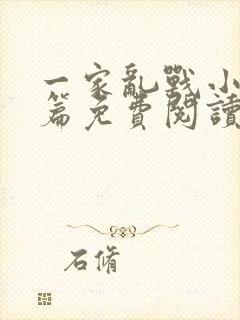 一家亂戰小
篇免費閱讀
石脩